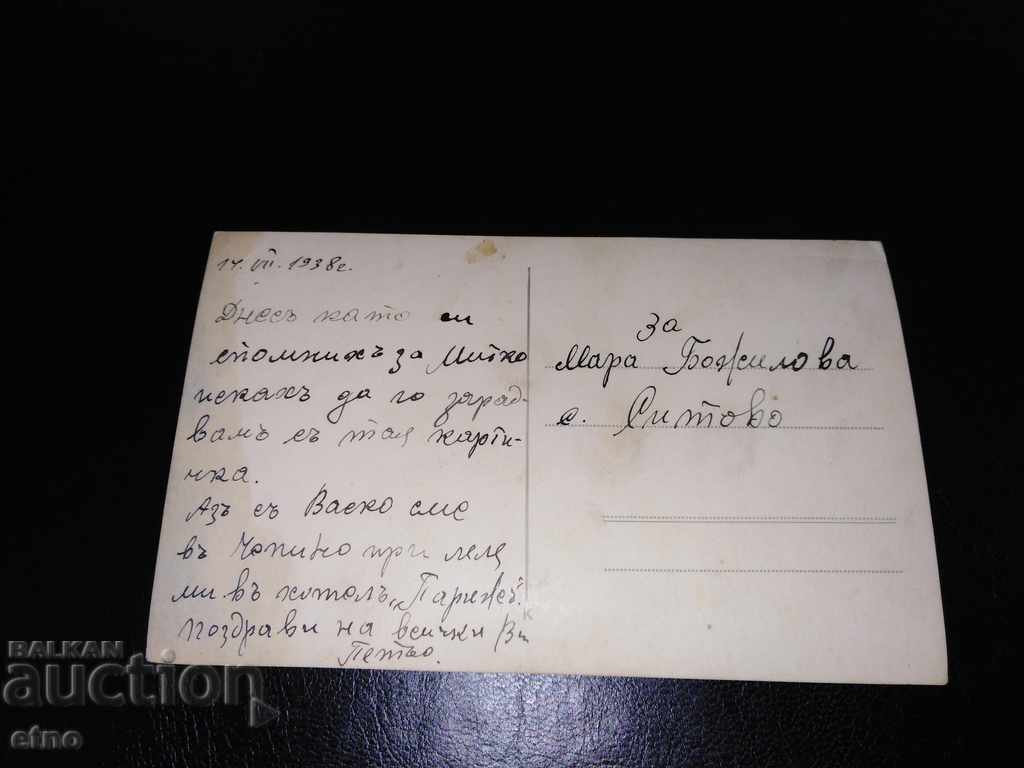 14. VII. 1938 г.
Днесъ като си
спомнихъ за Митко
искахъ да го зарад-
вамъ съ тая карти-
чка.
Азъ съ Васко сме
въ Чепино при леля
ми въ хотелъ „Парижъ“.
поздрави на всички Ви
Петьо.
за
Мара Божилова
с. Ситово
BALKAN
auction
etno